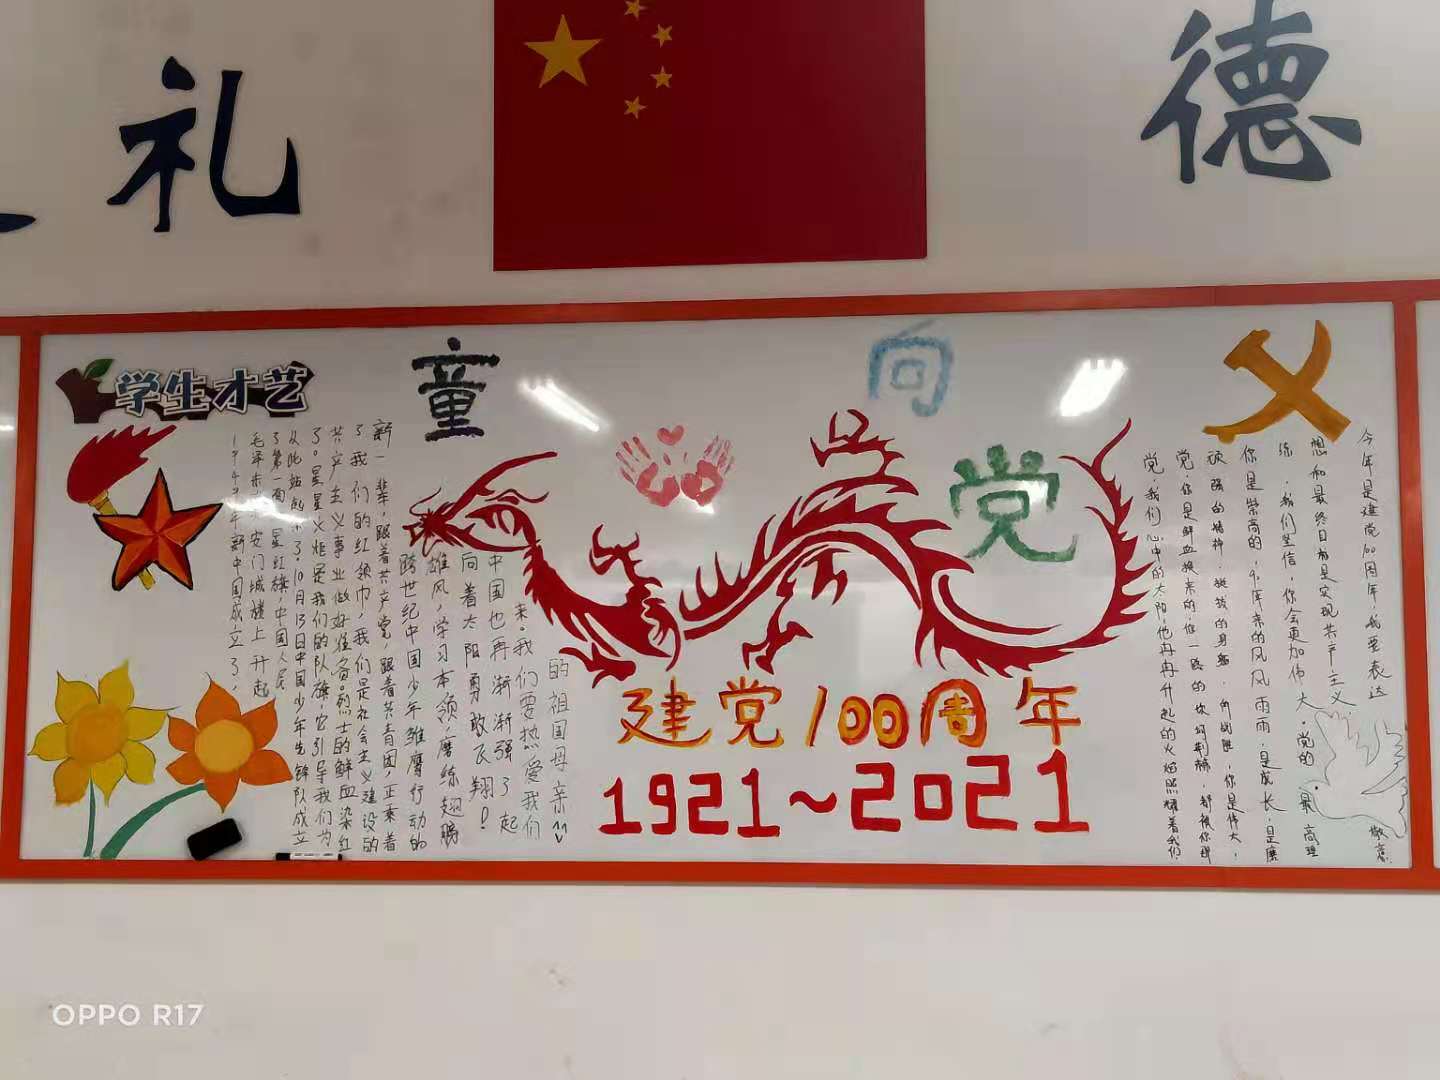 礼
德
学生才艺
童
向
党
1949年新中国成立了，
毛泽东 安门城楼上升起
了第一面 星红旗，中国人民
从此站起来了。10月13日中国少年先锋队成立
了。星星火炬是我们的队旗，它引导我们为
共产主义事业做好准备。烈士的鲜血染红
了我们的红领巾，我们是社会主义建设的
新一辈，跟着共产党，跟着共青团，正乘着
跨世纪中国少年雏鹰行动的
雄风，学习本领，磨练翅膀
向着太阳勇敢飞翔！
中国也再渐渐强了起
来。我们要热爱我们
的祖国母亲
建党100周年
1921~2021
党，我们心中的太阳，他冉冉升起的火焰照耀着我们，
党，你是鲜血换来的，你一路的坎坷荆棘，都被你那
顽强的精神，挺拔的身躯，所战胜，你是伟大，
你是崇高的，年来的风风雨雨，是成长，是磨
练，我们坚信，你会更加伟大，党的最高理
想和最终目标是实现共产主义
今年是建党100周年，我要表达敬意
OPPO R17